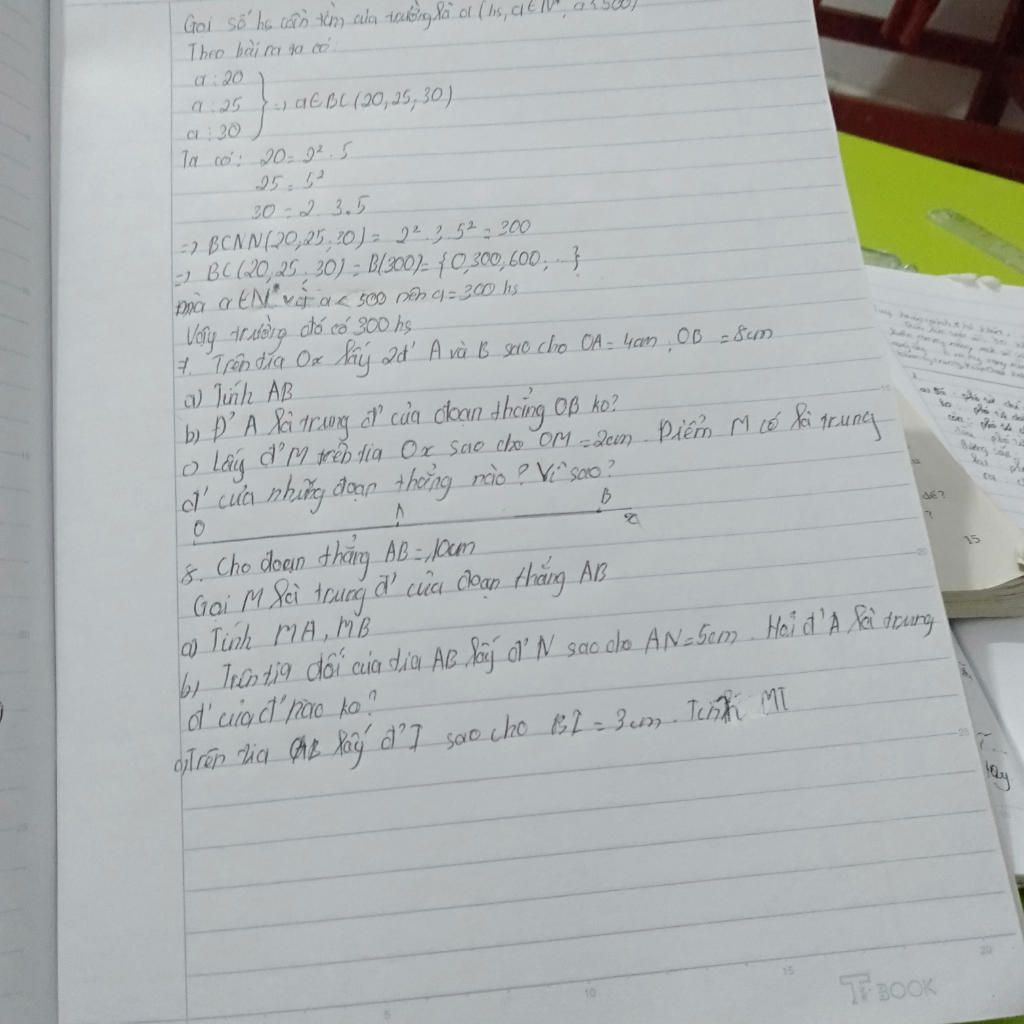 Gọi số hs cần tìm của trường là a (hs, a∈N*, a<500)
Theo bài ra ta có:
a : 20
a : 25
a : 30
} => a∈BC(20,25,30)
Ta có: 20 = 2² . 5
25 = 5²
30 = 2 . 3 . 5
=> BCNN(20,25,30) = 2² . 3 . 5² = 300
=> BC(20,25,30) = B(300) = {0,300,600,...}
mà a∈N* và a < 500 nên a = 300 hs
Vậy trường đó có 300 hs
7. Trên tia Ox lấy 2đ' A và B sao cho OA = 4cm, OB = 8cm
a) Tính AB
b) Đ' A là trung đ' của đoạn thẳng OB ko?
c) Lấy đ' M trên tia Ox sao cho OM = 2cm. Điểm M có là trung
đ' của những đoạn thẳng nào? Vì sao?
O A B x
8. Cho đoạn thẳng AB = 10cm
Gọi M là trung đ' của đoạn thẳng AB
a) Tính MA, MB
b) Trên tia đối của tia AB lấy đ' N sao cho AN = 5cm. Hỏi đ' A là trung
đ' của đ' nào ko?
c) Trên tia AB lấy đ' I sao cho BI = 3cm. Tính MI
15
TF BOOK
5 10 15 20